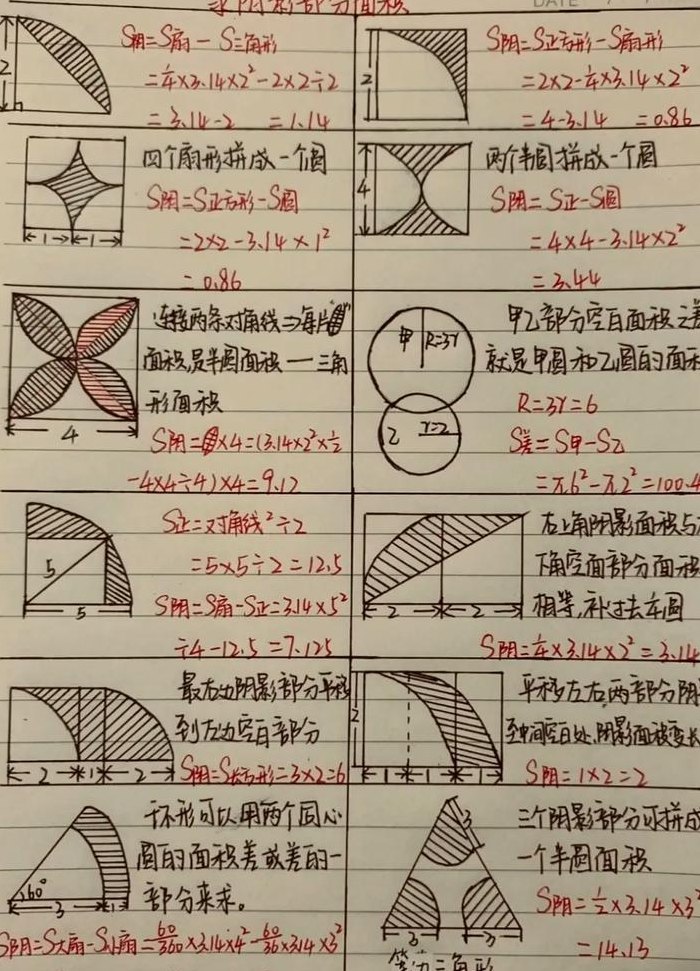 求阴影部分面积
DATE
2
S阴=S扇-S三角形
=1/4×3.14×2²-2×2÷2
=3.14-2 =1.14
2
S阴=S正方形-S扇形
=2×2-1/4×3.14×2²
=4-3.14 =0.86
1 1
四个扇形拼成一个圆
S阴=S正方形-S圆
=2×2-3.14×1²
=0.86
4
两个半圆拼成一个圆
S阴=S正-S圆
=4×4-3.14×2²
=3.44
4
连接两条对角线⇒每片
面积,是半圆面积一三角
形面积
S阴= ×4=(3.14×2²×1/2
-4×4÷4)×4=9.12
甲 R=3r
乙 r=2
甲乙部分空白面积之差
就是甲圆和乙圆的面积
R=3r=6
S差=S甲-S乙
=π6²-π2²=100.4
5
5
S正=对角线²÷2
=5×5÷2=12.5
S阴=S扇-S正=3.14×5²
÷4-12.5=7.125
2 2
右上角阴影面积与
下角空面部分面积
相等,补过去车圆
S阴=1/4×3.14×2²=3.14
2 1 2
最右边阴影部分平移
到左边空白部分
S阴=S长方形=3×2=6
2
1 1 1
平移左右两部分阴
至中间空白处,阴影面积变长
S阴=1×2=2
60°
3 1
环形可以用两个同心
圆的面积差或差的一
部分来求。
S阴=S大扇-S小扇=60/360×3.14×4²-60/36×3.14×3²
3
3 3
等边三角形
三个阴影部分可拼成
一个半圆面积
S阴=1/2×3.14×3²
=14.13